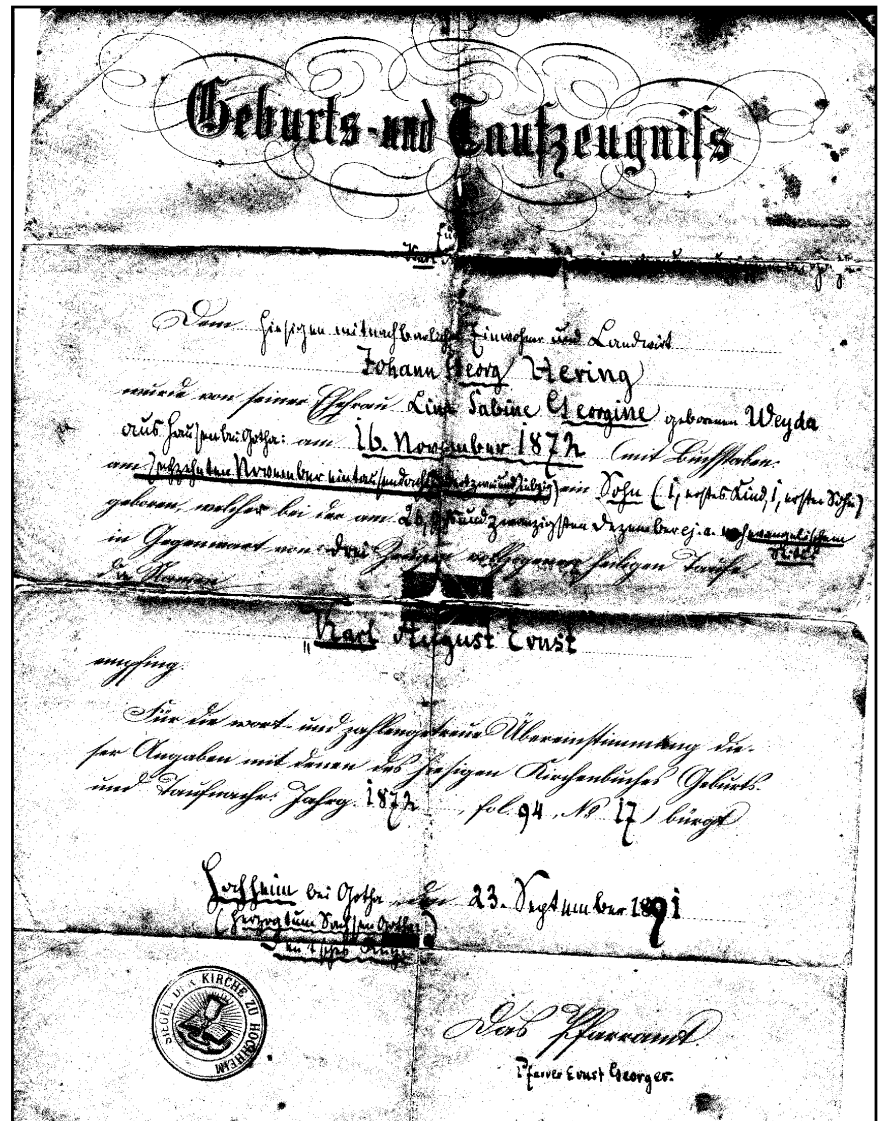 Geburts- und Taufzeugniſs
für
Karl
Dem hiesigen mitnachbarlichen Einwohner und Landwirt
Johann Georg Hering
wurde von seiner Ehefrau Lina Sabine Georgine geborenen Weyda
aus Hausen bei Gotha: am 16. November 1872 (mit Buchstaben:
am sechzehnten November eintausendachthundertzweiundsiebzig) ein Sohn (1, erstes Kind, 1, erster Sohn)
geboren, welcher bei der am 26, sechsundzwanzigsten Dezember ej. a. nach evangelischem
Ritus
in Gegenwart von drei Zeugen vollzogenen heiligen Taufe
die Namen
"Karl August Ernst
empfing.
Für die wort- und zahlengetreue Übereinstimmung die-
ser Angaben mit denen des hiesigen Kirchenbuches Geburts-
und Taufnachr. Jahrg. 1872, fol. 94, No 17) bürgt
Hochheim bei Gotha den 23. September 1891
(Herzogtum Sachsen Gotha)
Deutsches Reich
SIEGEL DER KIRCHE ZU HOCHHEIM
Das Pfarramt.
Pfarrer Ernst Georges.